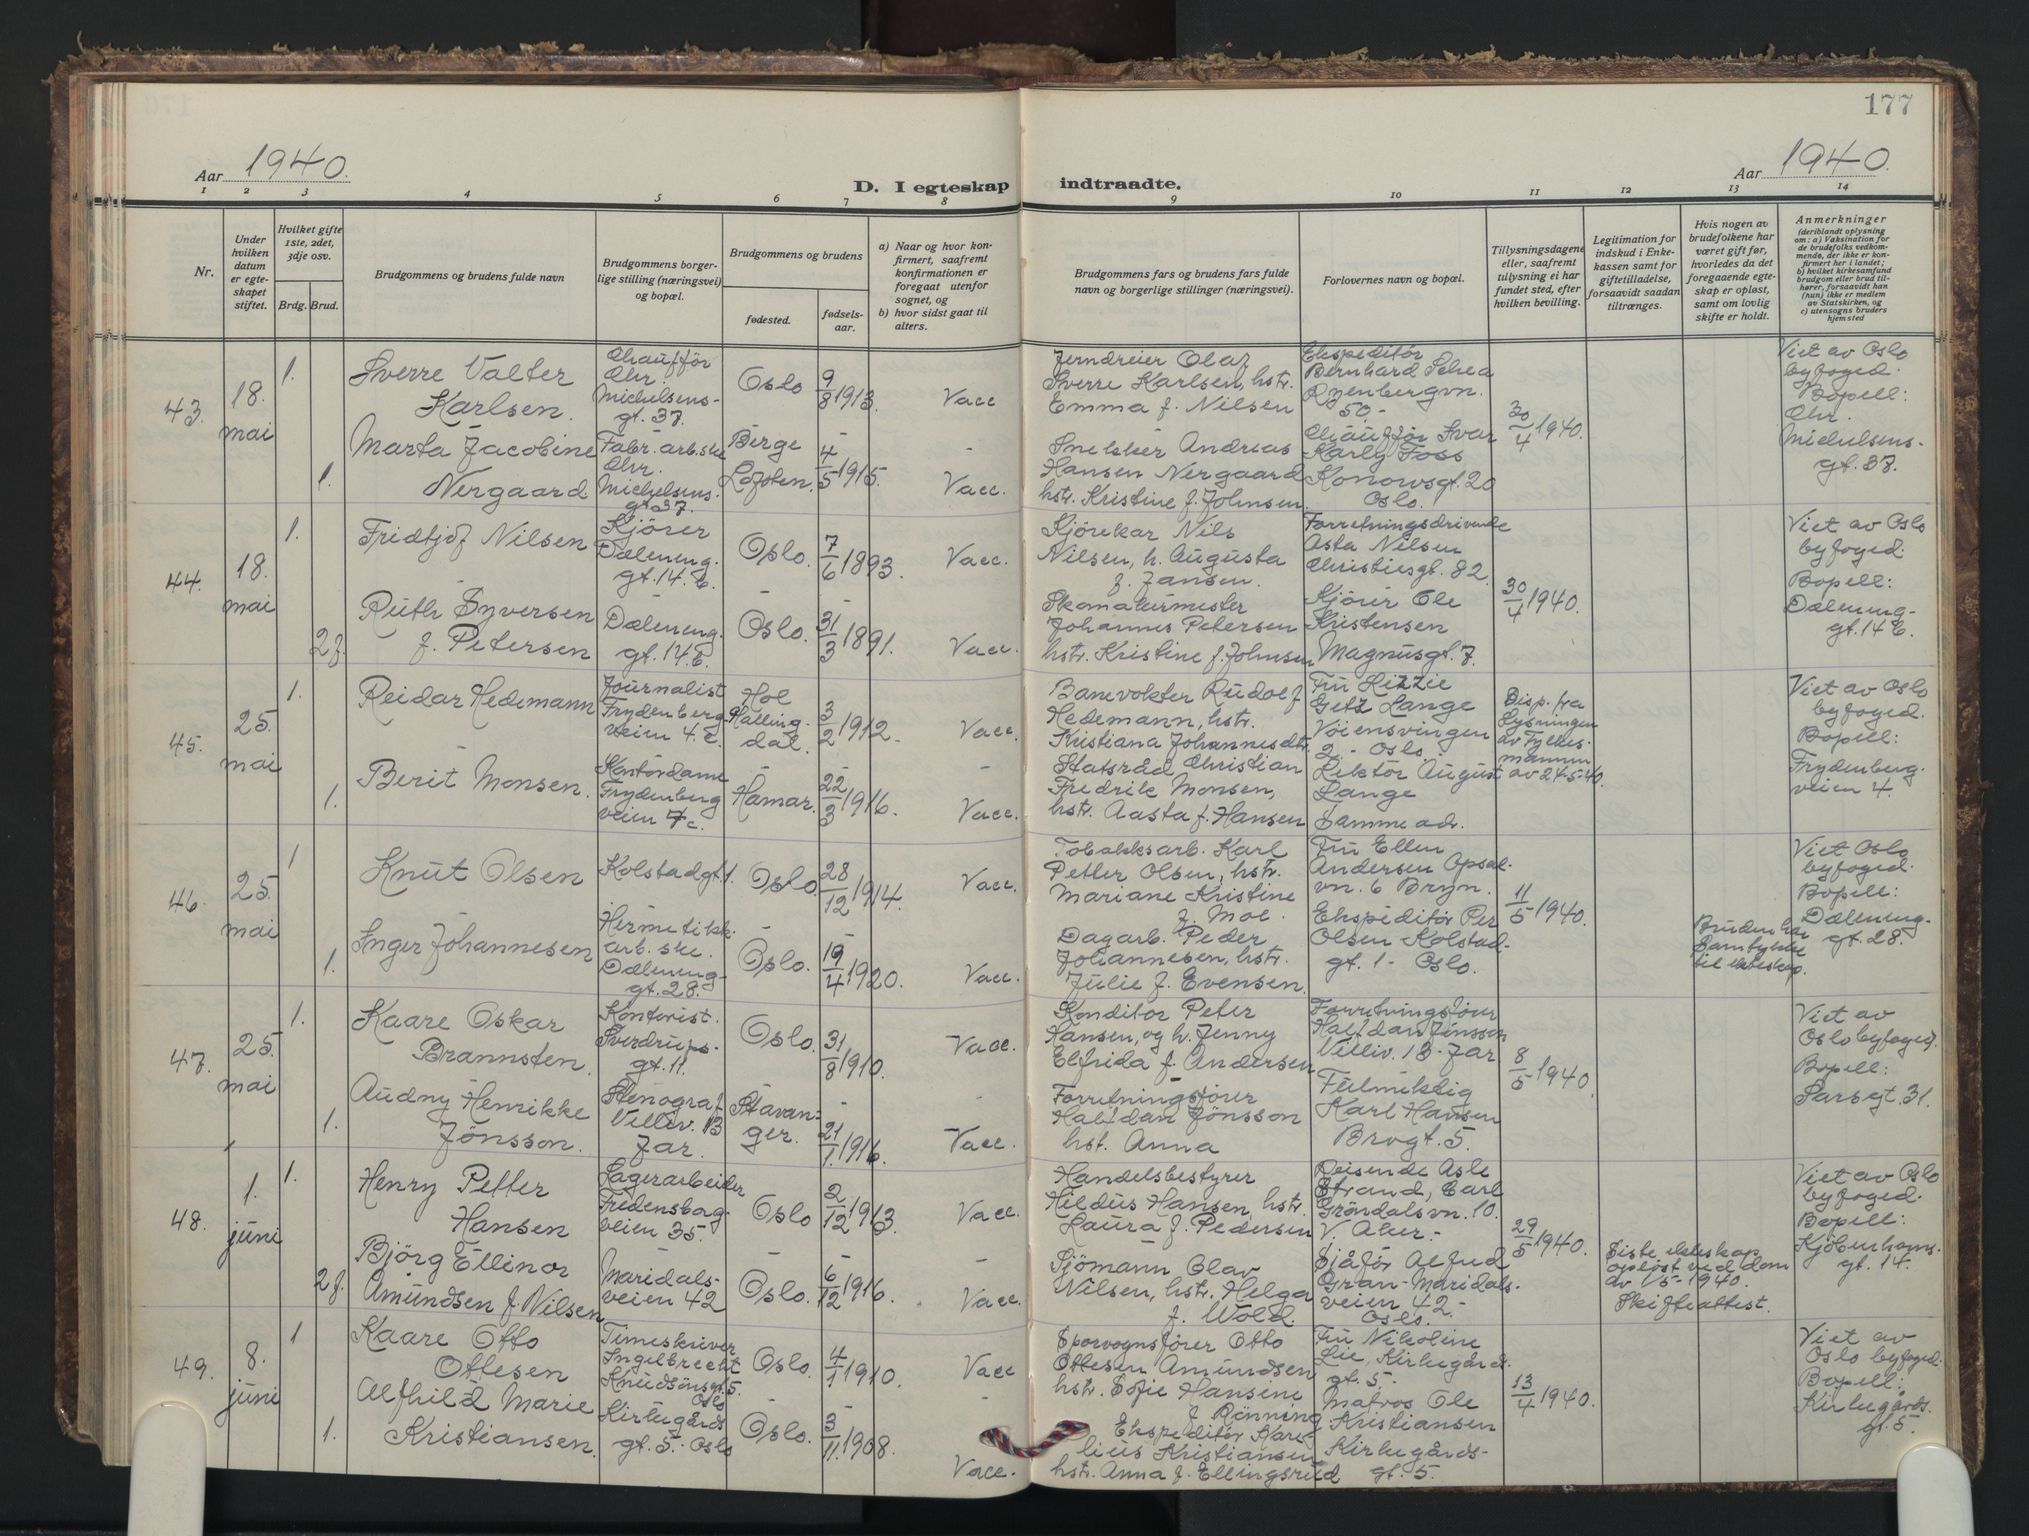 177
Aar 1940.
Aar 1940.
D. I egteskap indtraadte.
1 2 3 4 5 6 7 8 9 10 11 12 13 14
Nr.
Under hvilken datum er egte-skapet stiftet.
Hvilket gifte 1ste, 2det, 3dje osv.
Brdg. Brud.
Brudgommens og brudens fulde navn
Brudgommens borger-lige stilling (næringsvei) og bopæl.
Brudgommens og brudens
fødested.
fødsels-aar.
a) Naar og hvor kon-firmert, saafremt konfirmationen er foregaat utenfor sognet, og
b) hvor sidst gaat til alters.
Brudgommens fars og brudens fars fulde navn og borgerlige stillinger (næringsvei).
Forlovernes navn og bopæl.
Tillysningsdagene eller, saafremt tillysning ei har fundet sted, efter hvilken bevilling.
Legitimation for indskud i Enke-kassen samt for giftetilladelse, forsaavidt saadan tiltrænges.
Hvis nogen av brudefolkene har været gift før, hvorledes da det foregaaende egte-skap er opløst, samt om lovlig skifte er holdt.
Anmerkninger
(deriblandt oplysning om: a) Vaksination for de brudefolks vedkom-mende, der ikke er kon-firmert her i landet; b) hvilket kirkesamfund brudgom eller brud til-hører, forsaavidt han (hun) ikke er medlem av Statskirken, og c) utensogns bruders hjemsted
43. 18. mai
1. Sverre Valter Karlsen.
Chauffør Chr. Michelsens-gt. 37.
Oslo 9/8 1913. Vacc
Jerndreier Olaf Sverre Karlsen, hstr. Emma f. Nilsen
Ekspeditør Bernhard Schea Ryenbergvn. 50.-
30/4 1940.
Viet av Oslo byfoged. Bopell: Chr. Michelsens-gt. 37.
1. Marta Jacobine Nergaard
Fabr. arb. ske Chr. Michelsens. gt 37.
Berge Lofoten. 4/5 1915. Vacc.
Snekker Andreas Hansen Nergaard hstr. Kristine f. Johnsen
Chauffør Svar Karly Foss Konowsgt. 20 Oslo.
44. 18. mai
1. Fridtjof Nilsen
Kjører Dæleneng. gt. 14. E.
Oslo. 7/6 1893. Vacc.
Kjørekar Nils Nilsen, h. Augusta f. Jansen.
Forretningsdrivende Asta Nilsen Christiesgt. 82.
30/4 1940.
Viet av Oslo byfoged. Bopell: Dæleneng-gt. 14 E.
2 f. Ruth Syversen f. Petersen
Dæleneng. gt. 14. E.
Oslo. 31/3 1891. Vacc.
Skomakermester Johannes Petersen hstr. Kristine f. Johnsen
Kjører Ole Kristensen Magnusgt. 7.
45. 25. mai
1. Reidar Hedemann
Journalist Frydenberg-veien 4. c.
Hol Halling-dal. 3/2 1912. Vacc.
Banevokter Rudolf Hedemann, hstr. Kristiana Johannesdtr.
Fru Lizzie Getz Lange Vøiensvingen 2 - Oslo.
Disp. fra Lysningen av Fylkes-mannen av 24-5-40.
Viet av Oslo byfoged. Bopell: Frydenberg. veien 4.
1. Berit Monsen.
Kontordame Frydenberg veien 4 c.
Hamar. 22/3 1916. Vacc.
Statsråd Christian Fredrik Monsen, hstr. Aasta f. Hansen
Lektor August Lange Samme adr.
46. 25. mai
1 Knut Olsen
Kolstadgt. 1.
Oslo. 28/12 1914. Vacc.
Tobakksarb. Karl Petter Olsen, hstr. Mariane Kristine f. Moe.
Fru Ellen Andersen Opsal-vn. 6 Bryn.
11/5 1940.
Bruden har Samtykke til ekteskap.
Viet Oslo byfoged. Bopell: Dæleneng-gt. 28.
1. Inger Johannesen
Hermetikk. arb. ske. Dæleneng-gt. 28.
Oslo. 19/4 1920. Vacc.
Dagarb. Peder Johannesen, hstr. Julie f. Evensen.
Ekspeditør Per Olsen Kolstad-gt. 1 - Oslo.
47. 25. mai
1. Kaare Oskar Brannsten.
Kontorist. Sverdrups-gt. 11.
Oslo. 31/8 1910. Vacc.
Konditor Peter Hansen, og h. Jenny Elfrida f. Andersen
Forretningsfører Halfdan Jönsson Villiv. 13. Jar
8/5 1940.
Viet av Oslo byfoged. Bopell: Parsgt. 31.
1. Audny Henrikke Jönsson.
Stenograf Villiv. 13 Jar.
Stavan-ger. 21/1. 1916. Vacc.
Forretningsfører Halfdan Jönsson hst. Anna
Fulmektig Karl Hansen Brogt. 5.
48. 1. juni
1. Henry Petter Hansen
Lagerarbeider Fredensborg-veien 35.
Oslo 2/12 1913. Vacc.
Handelsbestyrer Hildus Hansen, hstr. Laura f. Pedersen
Reisende Asle Strand, Carl Gröndalsvn. 10. V. Aker.-
29/5 1940.
Siste ekteskap opløst ved dom av 1/5-1940. Skifteattest.
Viet av Oslo byfoged. Bopell: Kjøbenhavns. gt. 14.
2 f. Bjørg Ellinor Amundsen f. Nilsen
Maridals-veien 42
Oslo. 6/12 1916. Vacc.
Sjömann Olav Nilsen, hstr. Helga f. Wold.
Sjåfør Alfred Gran-Maridals-veien 42 - Oslo.
49. 8. juni
1 Kaare Otto Ottesen
Timeskriver Ingelbrecht Knudsönsgt. 5. Oslo
Oslo. 4/1 1910. Vacc
Sporvognsfører Otto Ottesen Amundsen hstr. Sofie Hansine f. Rønning
Fru Nikoline Lie, Kirkegårds. gt. 5.-
13/4 1940.
Viet av Oslo byfoged. Bopell: Kirkegårds. gt. 5.
1. Alfhild Marie Kristiansen.
Kirkegårds gt. 5. Oslo
Oslo. 3/11. 1908. Vacc.
Ekspeditör Karelius Kristiansen hstr. Anna f. Ellingsrud
Matros Ole Kristiansen Kirkegårds-gt. 5.